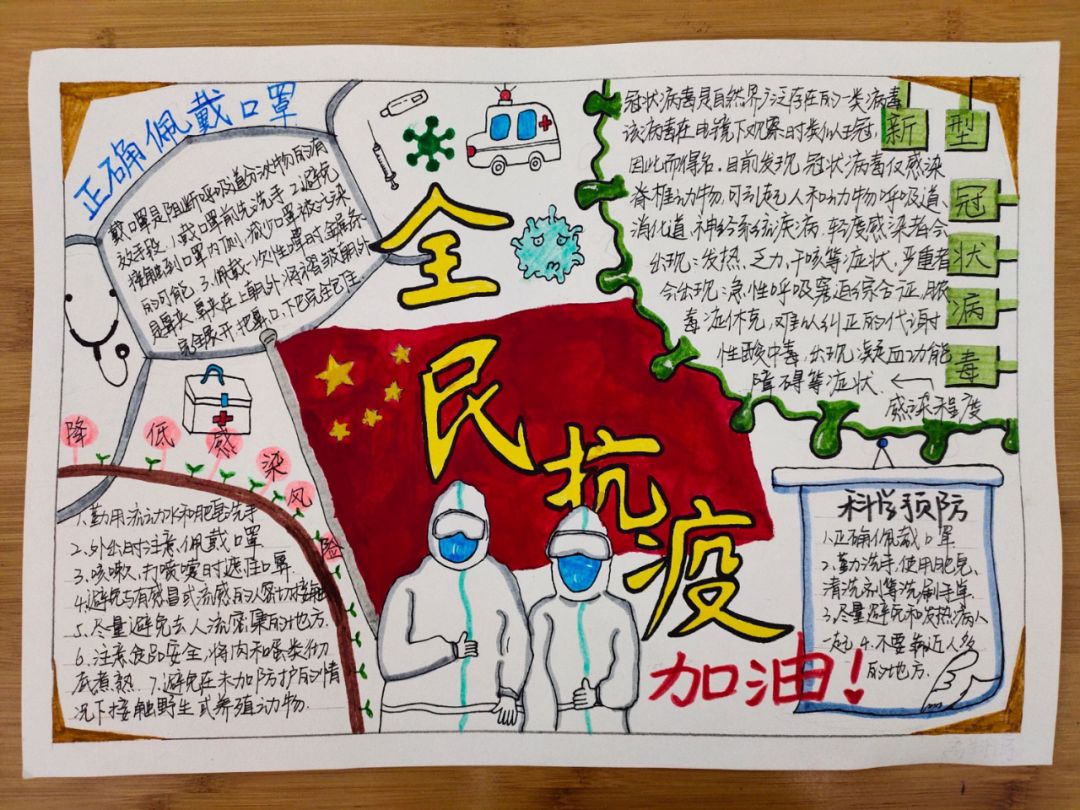 正确佩戴口罩
戴口罩是阻断呼吸道分泌物的有
效手段。1.戴口罩前先洗手 2.避免
接触到口罩内侧,减少口罩被污染
的可能 3.佩戴一次性口罩时,金属条
是鼻夹 鼻夹在上,朝外,将褶皱朝外
完全展开,把鼻、口、下巴完全包住
全
民
抗
疫
加油!
新型
冠
状
病
毒
冠状病毒是自然界广泛存在的一类病毒
该病毒在电镜下观察时类似王冠,
因此而得名.目前发现,冠状病毒仅感染
脊椎动物,可引起人和动物呼吸道、
消化道、神经系统疾病.轻度感染者会
出现:发热、乏力、干咳等症状,严重者
会出现:急性呼吸窘迫综合征、脓
毒症休克,难以纠正的代谢
性酸中毒,出现凝血功能
障碍等症状
感染程度
降低感染风险
1.勤用流动水和肥皂洗手
2.外出时注意佩戴口罩
3.咳嗽、打喷嚏时遮住口鼻
4.避免与有感冒或流感的人密切接触
5.尽量避免去人流密集的地方.
6.注意食品安全,将肉和蛋类彻
底煮熟.7.避免在未加防护的情
况下接触野生或养殖动物.
科学预防
1.正确佩戴口罩
2.勤洗手,使用肥皂、
清洗剂等洗刷手单.
3.尽量避免和发热病人
一起 4.不要靠近人多
的地方.